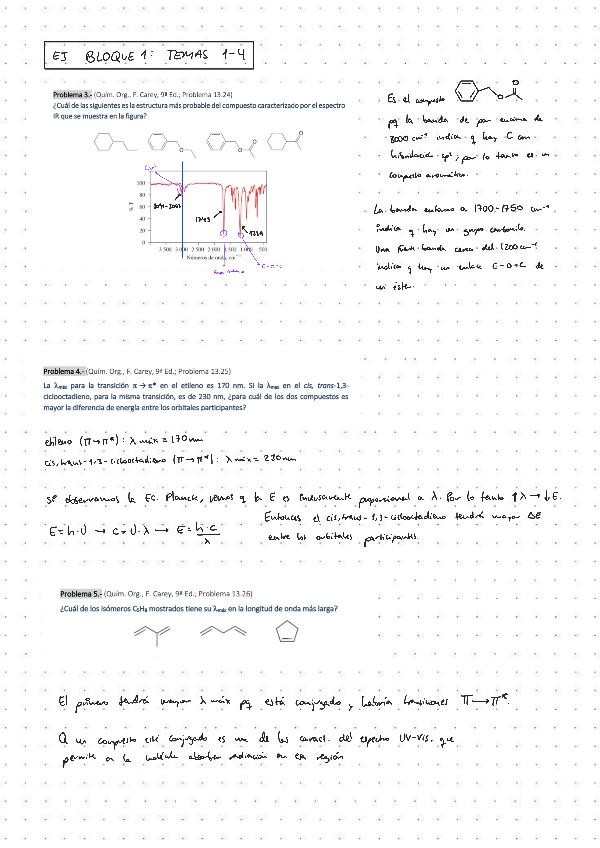 EJ BLOQUE 1: TEMAS 1-4
Problema 3.- (Quím. Org., F. Carey, 9ª Ed.; Problema 13.24)
¿Cuál de las siguientes es la estructura más probable del compuesto caracterizado por el espectro
IR que se muestra en la figura?
Es el compuesto
pq la banda de por encima de
3000 cm⁻¹ indica q hay C con
hibridación sp², por lo tanto es un
compuesto aromático.
La banda entorno a 1700-1750 cm⁻¹
indica q hay un grupo carbonilo.
Una banda cerca del 1200 cm⁻¹
indica q hay un enlace C-O-C de
un éster.
% T
100
80
60
40
20
0
1743
1229
3 500 3 000 2 500 2 000 1 500 1 000 500
Números de onda, cm⁻¹
C-O-C
Problema 4.- (Quím. Org., F. Carey, 9ª Ed.; Problema 13.25)
La λmáx para la transición π → π* en el etileno es 170 nm. Si la λmáx en el cis, trans-1,3-
ciclooctadieno, para la misma transición, es de 230 nm, ¿para cuál de los dos compuestos es
mayor la diferencia de energía entre los orbitales participantes?
etileno (π→π*): λ máx = 170 nm
cis, trans-1,3-ciclooctadieno (π→π*): λ máx = 230 nm
Si observamos la Ec. Planck, vemos q la E es inversamente proporcional a λ. Por lo tanto ↑λ → ↓E.
E = h·υ → c = υ·λ → E = h·c/λ
Entonces el cis, trans-1,3-ciclooctadieno tendrá mayor ΔE
entre los orbitales participantes.
Problema 5.- (Quím. Org., F. Carey, 9ª Ed.; Problema 13.26)
¿Cuál de los isómeros C₅H₈ mostrados tiene su λmáx en la longitud de onda más larga?
El primero tendrá mayor λ máx pq está conjugado y habría transiciones π→π*.
Q un compuesto esté conjugado es una de las caract. del espectro UV-Vis. que
permite a la molécula absorber radiación en esa región